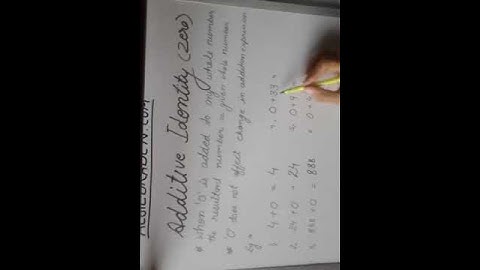 Additive Identity (Zero)
* When '0' is added to any whole number
the resultant number is given whole number
* '0' does not effect change in addition expression
Eg =
1. 4 + 0 = 4
2. 24 + 0 = 24
3. 888 + 0 = 888
4. 0 + 33 =